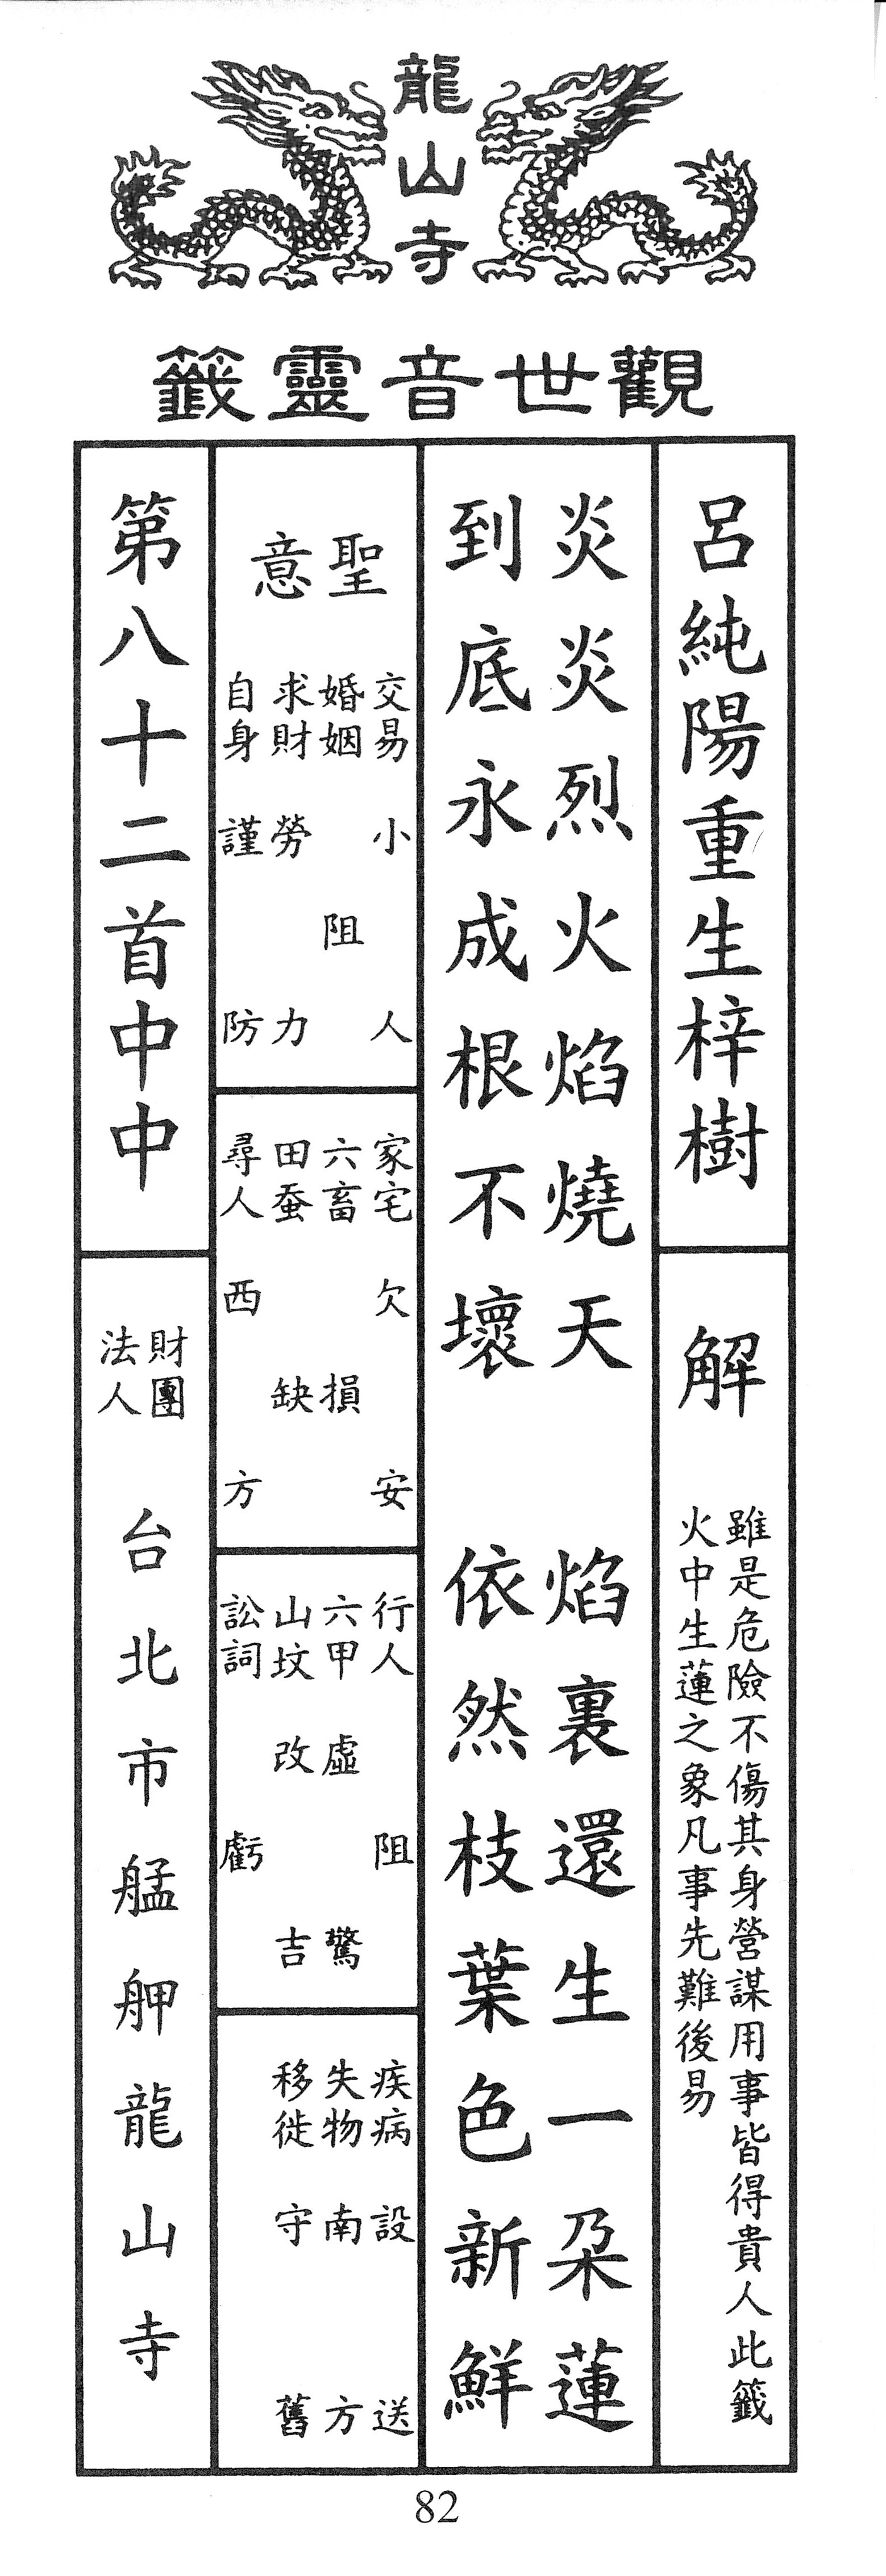 龍山寺
觀世音靈籤
呂純陽重生梓樹
解
雖是危險不傷其身營謀用事皆得貴人此籤
火中生蓮之象凡事先難後易
炎炎烈火焰燒天 焰裏還生一朵蓮
到底永成根不壞 依然枝葉色新鮮
聖意
交易 小人
婚姻 阻
求財 勞力
自身 謹防
家宅 欠安
六畜 損
田蚕 缺
尋人 西方
行人 阻
六甲 虛驚
山坟 改吉
訟詞 虧
疾病 設送
失物 南方
移徙 守舊
第八十二首中中
財團法人
台北市艋舺龍山寺
82